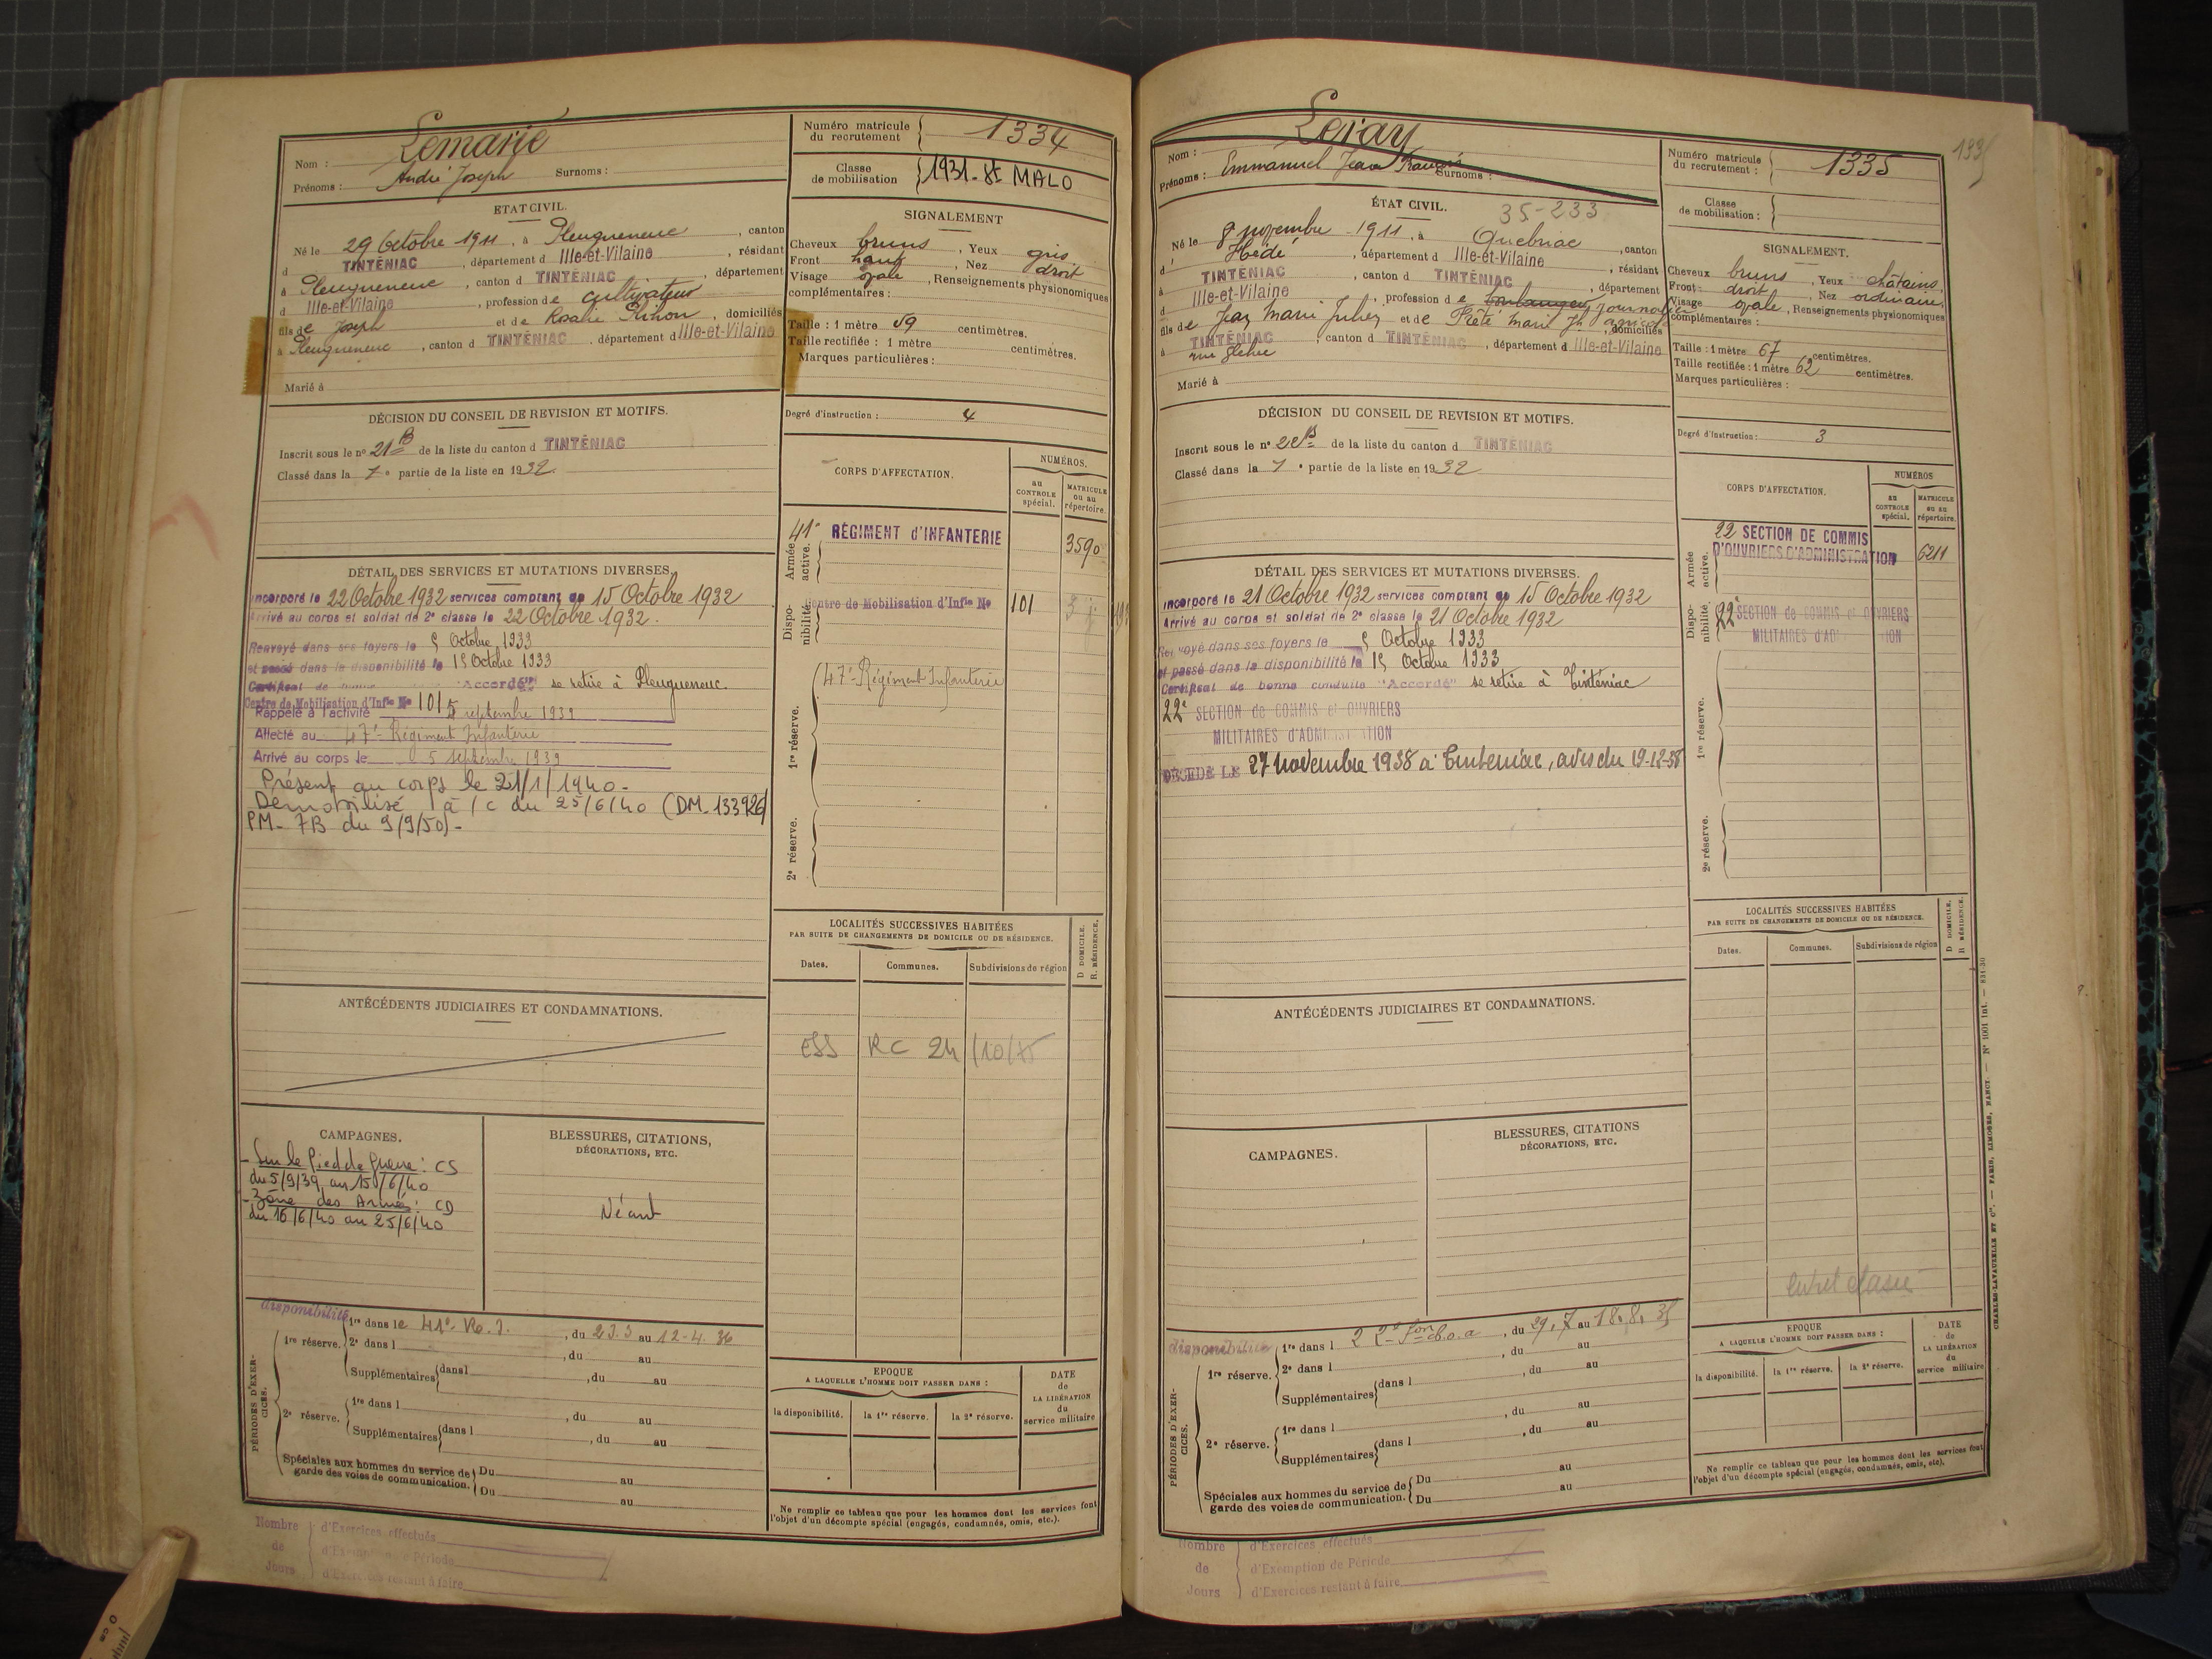 Nom : Lemarié
Prénoms : André Joseph Surnoms :
Numéro matricule du recrutement 1334
Classe de mobilisation 1931 - St MALO
ETAT CIVIL.
Né le 29 Octobre 1911, à Pleugueneuc, canton
d TINTÉNIAC, département d Ille-et-Vilaine, résidant
à Pleugueneuc, canton d TINTÉNIAC, département
d Ille-et-Vilaine, profession de cultivateur
fils de Joseph et de Rosalie, domiciliés
à Pleugueneuc, canton d TINTÉNIAC, département d Ille-et-Vilaine
Marié à
SIGNALEMENT
Cheveux bruns, Yeux gris
Front haut, Nez droit
Visage ovale, Renseignements physionomiques
complémentaires :
Taille : 1 mètre 59 centimètres.
Taille rectifiée : 1 mètre centimètres.
Marques particulières :
Degré d'instruction : 4
DÉCISION DU CONSEIL DE REVISION ET MOTIFS.
Inscrit sous le nº 21 B de la liste du canton d TINTÉNIAC
Classé dans la 1e partie de la liste en 1932.
CORPS D'AFFECTATION.
NUMÉROS.
au CONTROLE spécial.
MATRICULE ou au répertoire.
Armée active.
41e RÉGIMENT d'INFANTERIE 3590
Disponibilité.
Centre de Mobilisation d'Infie No 101
1re réserve.
47e Régiment Infanterie
2e réserve.
DÉTAIL DES SERVICES ET MUTATIONS DIVERSES.
Incorporé le 22 Octobre 1932 services comptant du 15 Octobre 1932
Arrivé au corps et soldat de 2e classe le 22 Octobre 1932.
Renvoyé dans ses foyers le 5 Octobre 1933
et passé dans la disponibilité le 15 Octobre 1933
Certificat de bonne "Accordé" se retire à Pleugueneuc.
Centre de Mobilisation d'Infie No 101
Rappelé à l'activité 5 septembre 1939
Affecté au 47e Régiment Infanterie
Arrivé au corps le 5 septembre 1939
Présent au corps le 21/1/1940 -
Démobilisé à /c du 25/6/40 (DM-133926
PM- 7B du 9/9/50) -
ANTÉCÉDENTS JUDICIAIRES ET CONDAMNATIONS.
LOCALITÉS SUCCESSIVES HABITÉES
PAR SUITE DE CHANGEMENTS DE DOMICILE OU DE RÉSIDENCE.
Dates. Communes. Subdivisions de région
D. DOMICILE.
R. RÉSIDENCE.
ESS RC 24/10/75
CAMPAGNES.
- Sur le Pied de Guerre : CS
du 5/9/39 au 15/6/40
- Zône des Armées : CD
du 16/6/40 au 25/6/40
BLESSURES, CITATIONS,
DÉCORATIONS, ETC.
Néant
disponibilité
PÉRIODES D'EXERCICES.
1re réserve. 1re dans le 41e R.I., du 23.3 au 12-4.36
2e dans l , du au
Supplémentaires dans l , du au
2e réserve. 1re dans l , du au
Supplémentaires dans l , du au
Spéciales aux hommes du service de garde des voies de communication. Du au
Du au
EPOQUE
A LAQUELLE L'HOMME DOIT PASSER DANS :
la disponibilité. la 1re réserve. la 2e réserve.
DATE de LA LIBÉRATION du service militaire
Ne remplir ce tableau que pour les hommes dont les services font
l'objet d'un décompte spécial (engagés, condamnés, omis, etc.).
Nombre de Jours
d'Exercices effectués
d'Exemption de Période
d'Exercices restant à faire
1335
Nom : Leray
Prénoms : Emmanuel Jean François Surnoms :
Numéro matricule du recrutement : 1335
Classe de mobilisation :
ÉTAT CIVIL. 35-233
Né le 8 novembre 1911, à Québriac, canton
d Hédé, département d Ille-et-Vilaine, résidant
à TINTÉNIAC, canton d TINTÉNIAC, département
d Ille-et-Vilaine, profession de boulanger journalier
fils de Jean Marie Julien et de Marie, domiciliés
à TINTÉNIAC, canton d TINTÉNIAC, département d Ille-et-Vilaine
Marié à
SIGNALEMENT.
Cheveux bruns, Yeux châtains
Front droit, Nez ordinaire
Visage ovale, Renseignements physionomiques
complémentaires :
Taille : 1 mètre 67 centimètres.
Taille rectifiée : 1 mètre 62 centimètres.
Marques particulières :
Degré d'instruction : 3
DÉCISION DU CONSEIL DE REVISION ET MOTIFS.
Inscrit sous le nº de la liste du canton d TINTÉNIAC
Classé dans la 1e partie de la liste en 1932
CORPS D'AFFECTATION.
NUMÉROS
au CONTROLE spécial.
MATRICULE ou au répertoire.
Armée active.
22 SECTION DE COMMIS
D'OUVRIERS D'ADMINISTRATION 6211
Disponibilité.
22e SECTION de COMMIS et OUVRIERS
MILITAIRES d'ADMINISTRATION
1re réserve.
2e réserve.
DÉTAIL DES SERVICES ET MUTATIONS DIVERSES.
Incorporé le 21 Octobre 1932 services comptant du 15 Octobre 1932
Arrivé au corps et soldat de 2e classe le 21 Octobre 1932
Renvoyé dans ses foyers le 5 Octobre 1933
et passé dans la disponibilité le 15 Octobre 1933
Certificat de bonne conduite "Accordé" se retire à Tinténiac
22e SECTION de COMMIS et OUVRIERS
MILITAIRES d'ADMINISTRATION
DÉCÉDÉ LE 27 novembre 1938 à Tinténiac, avis du 19-12-38
ANTÉCÉDENTS JUDICIAIRES ET CONDAMNATIONS.
LOCALITÉS SUCCESSIVES HABITÉES
PAR SUITE DE CHANGEMENTS DE DOMICILE OU DE RÉSIDENCE.
Dates. Communes. Subdivisions de région
D. DOMICILE.
R. RÉSIDENCE.
CAMPAGNES.
BLESSURES, CITATIONS
DÉCORATIONS, ETC.
disponibilité
PÉRIODES D'EXERCICES.
1re réserve. 1re dans l 22e Son c.o.a, du 29.7 au 18.8.35
2e dans l , du au
Supplémentaires dans l , du au
2e réserve. 1re dans l , du au
Supplémentaires dans l , du au
Spéciales aux hommes du service de garde des voies de communication. Du au
Du au
EPOQUE
A LAQUELLE L'HOMME DOIT PASSER DANS :
la disponibilité. la 1re réserve. la 2e réserve.
DATE de LA LIBÉRATION du service militaire
Ne remplir ce tableau que pour les hommes dont les services font
l'objet d'un décompte spécial (engagés, condamnés, omis, etc).
CHARLES-LAVAUZELLE ET Cie. — PARIS, LIMOGES, NANCY. — Nº 1001 int. — 831-30
Nombre de Jours
d'Exercices effectués
d'Exemption de Période
d'Exercices restant à faire